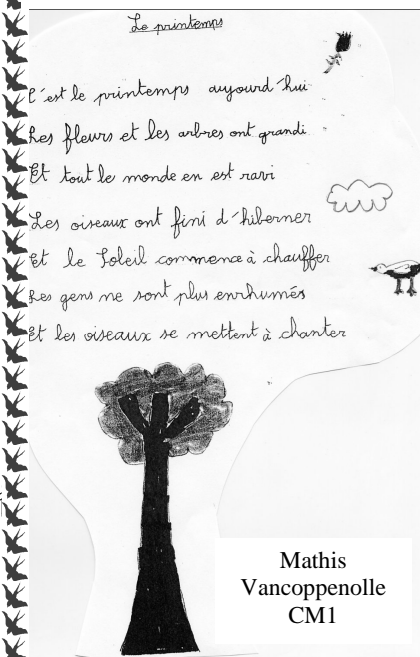 Le printemps
C'est le printemps aujourd'hui
Les fleurs et les arbres ont grandi
Et tout le monde en est ravi
Les oiseaux ont fini d'hiberner
et le Soleil commence à chauffer
Les gens ne sont plus enrhumés
Et les oiseaux se mettent à chanter
Mathis
Vancoppenolle
CM1